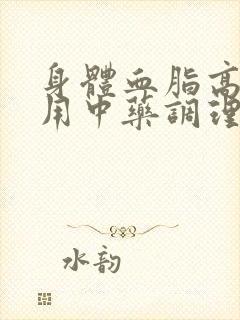 身體血脂高
用中藥調理
水韵